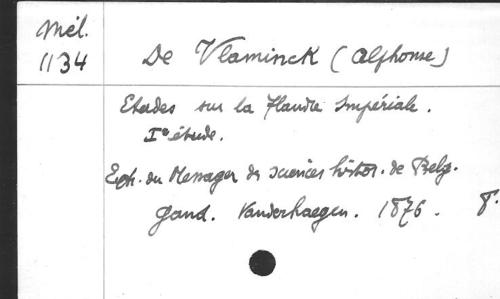 Mél.
1134
De Vlaminck (Alphonse)
Etudes sur la Flandre Impériale.
Ie étude.
Extr. du Messager des sciences histor. de Belg.
Gand. Vanderhaegen. 1876. 8°.